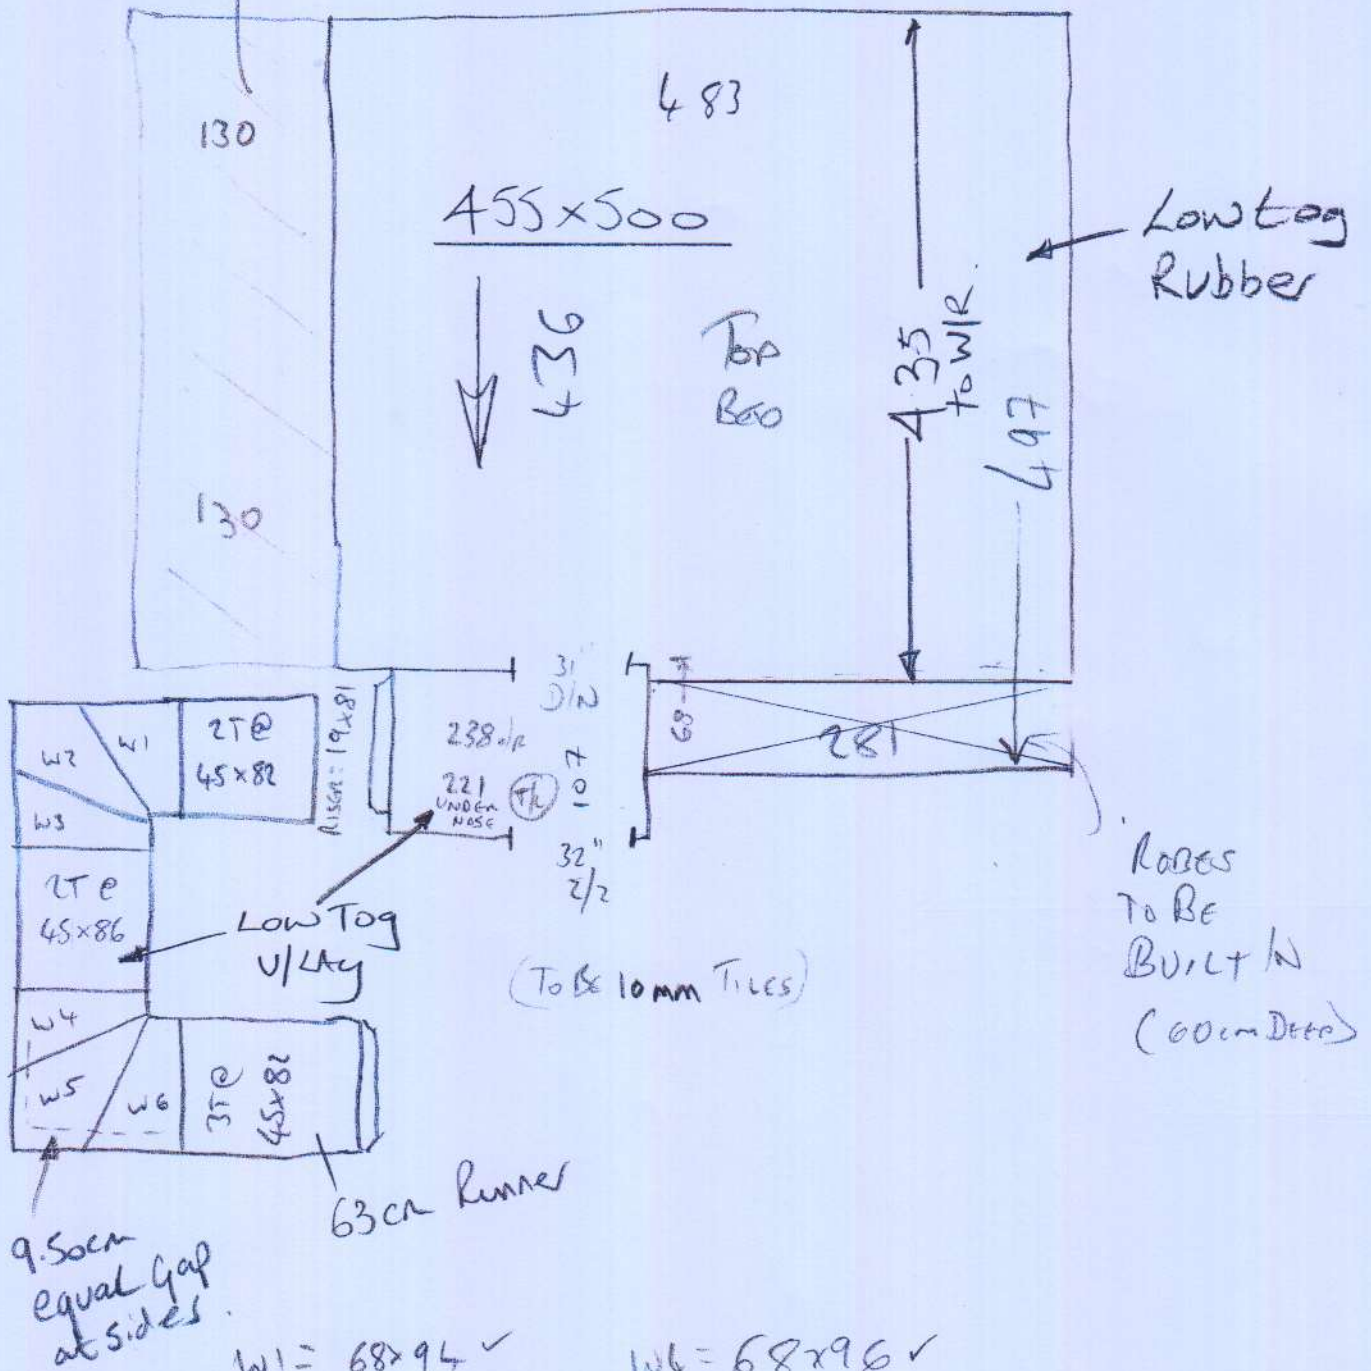 130
483
455x500
Low tog
Rubber
436
Top
BED
435
to W/R.
497
130
31"
D/N
69
281
W2
W1
2T@
45x82
RISER = 19x81
238
221
UNDER
NOSE
T/L
107
32"
2/2
W3
2T@
45x86
Low Tog
U/LAY
(TO BE 10mm TILES)
ROBES
TO BE
BUILT IN
(60cm DEEP)
W4
W5
W6
3T@
45x82
63cm Runner
9.50cm
equal Gap
at sides.
W1 = 68x94 ✓
W4 = 68x96 ✓